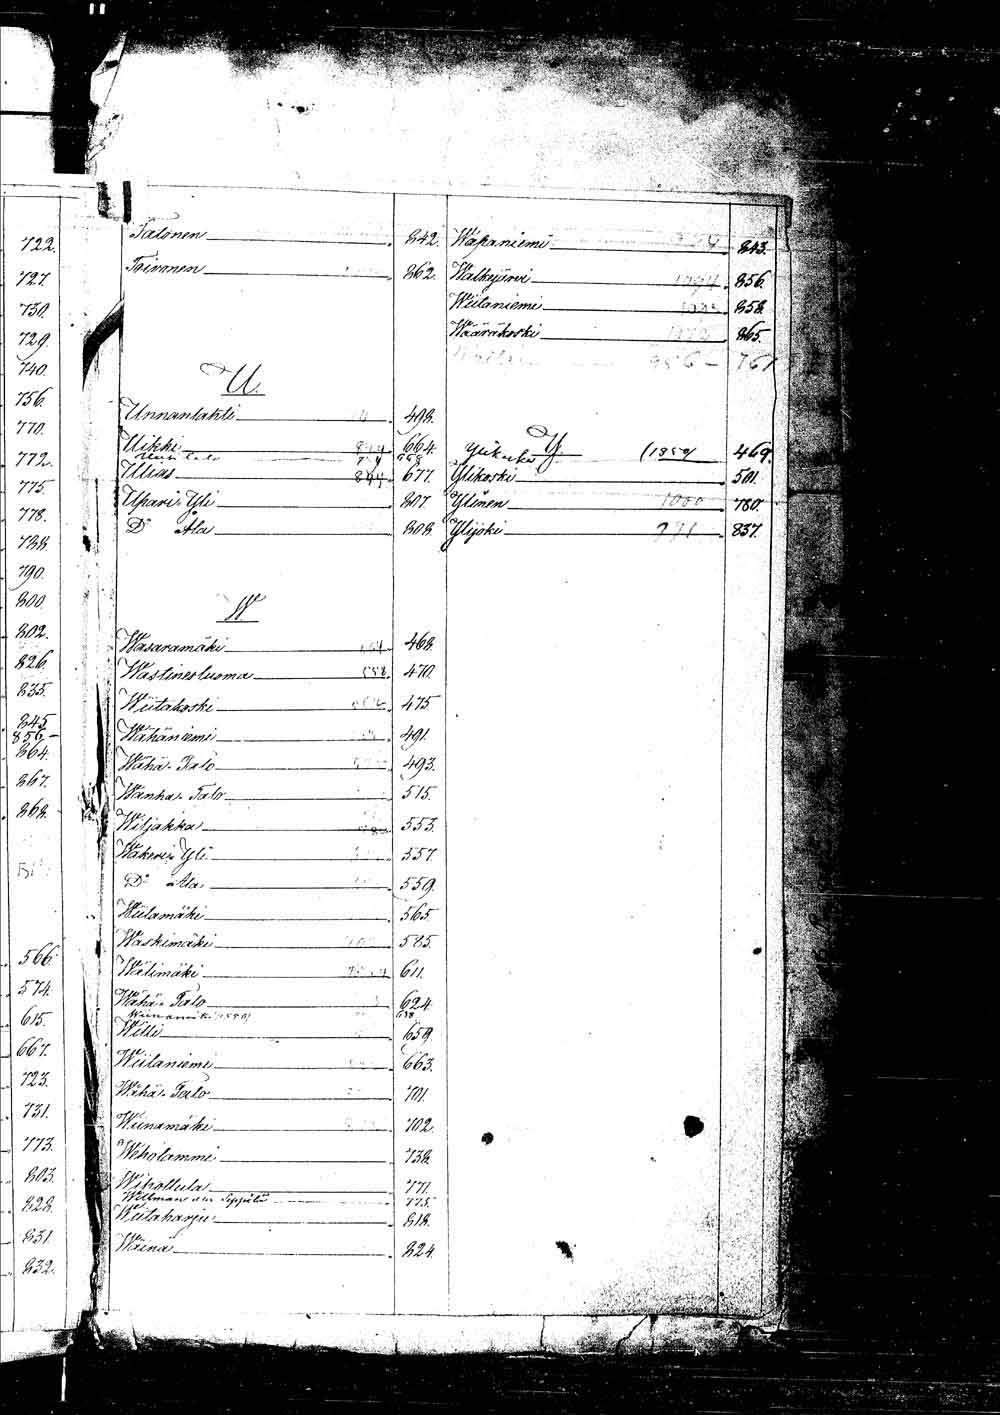 722.
727.
730.
729
740.
756.
770.
772.
775.
778.
788.
790.
800.
802.
826.
835.
845.
856
864.
867.
868.
566.
574.
615.
667.
723.
731.
773.
803.
828.
831.
832.
Talonen 842.
Toivonen 862.
U.
Unnanlahti 498.
Uikki 664.
Uusi Talo
Ullias 844 677.
Upari Yli 807.
Do Ala 808.
W.
Wasaramäki 468.
Wastinesluoma 558 470.
Wiitakoski 475
Wähäniemi 491.
Wähä-Talo 493.
Wanha-Talo 515.
Wiljakka 553.
Wäkeri Yli 557.
Do Ala 559.
Wiilamäki 565.
Waskimäki 585.
Wälimäki 611.
Wähä-Talo 624
Wiinamäki
Willi 659.
Wiitaniemi 663.
Wähä-Talo 701.
Wiinamäki 702.
Weholammi 738.
Wihollula 771.
Willman Seppälä 775.
Wiitaharju 818.
Wäinä 824.
Wapaniemi 843.
Walkejärvi 1094 856.
Wiitaniemi 858.
Wääräkoski 865.
956 - 761
Y.
(1859) 469.
Ylikoski 501.
Ylinen 1000 780.
Ylijoki 971 837.